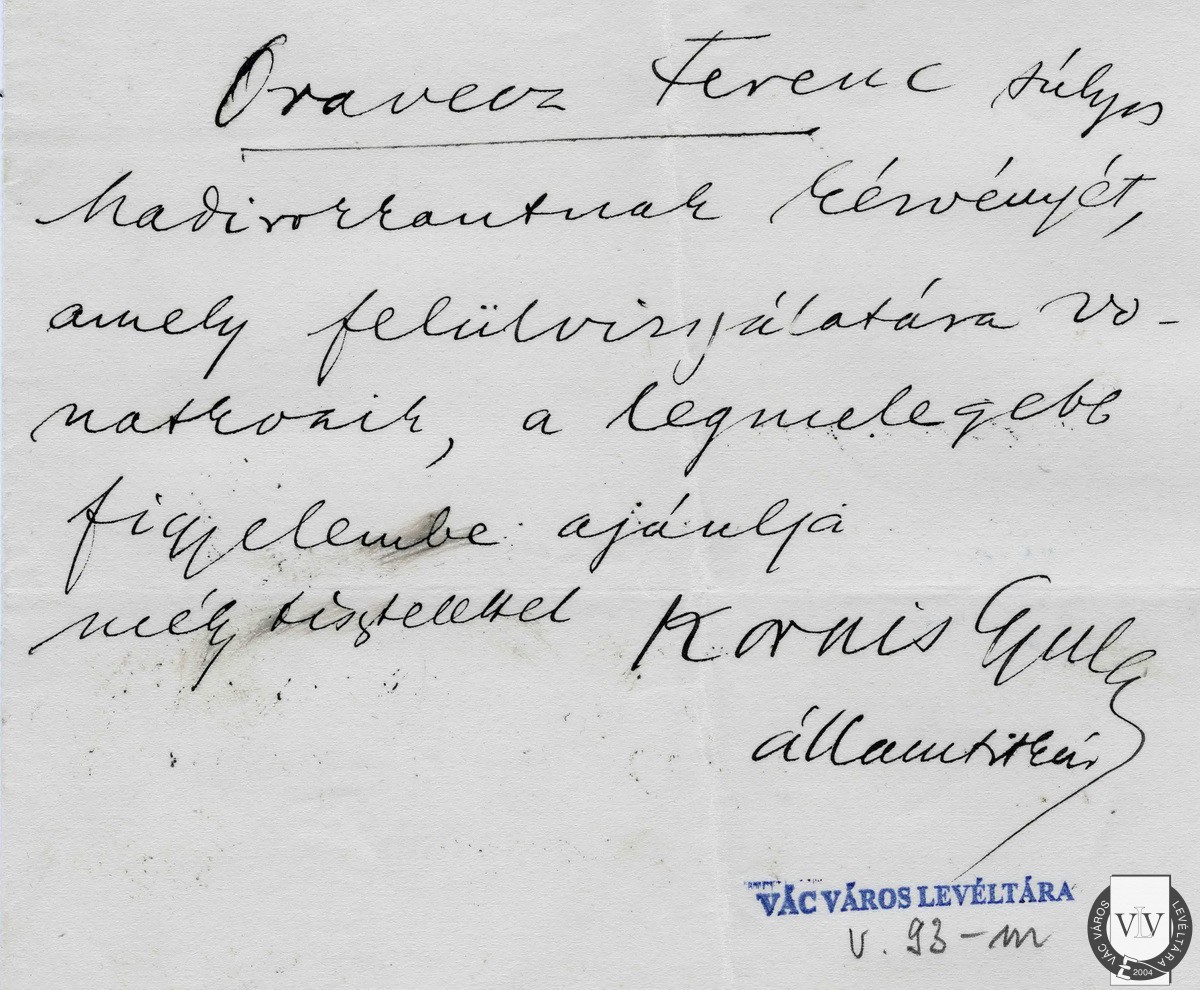 Oravecz Ferenc súlyos
hadirokkantnak kérvényét,
amely felülvizsgálatára vo-
natkozik, a legmelegebb
figyelembe ajánlja
mély tisztelettel Kornis Gyula
államtitkár
VÁC VÁROS LEVÉLTÁRA
V. 93-m
VÁC VÁROS LEVÉLTÁRA
VLV
2004